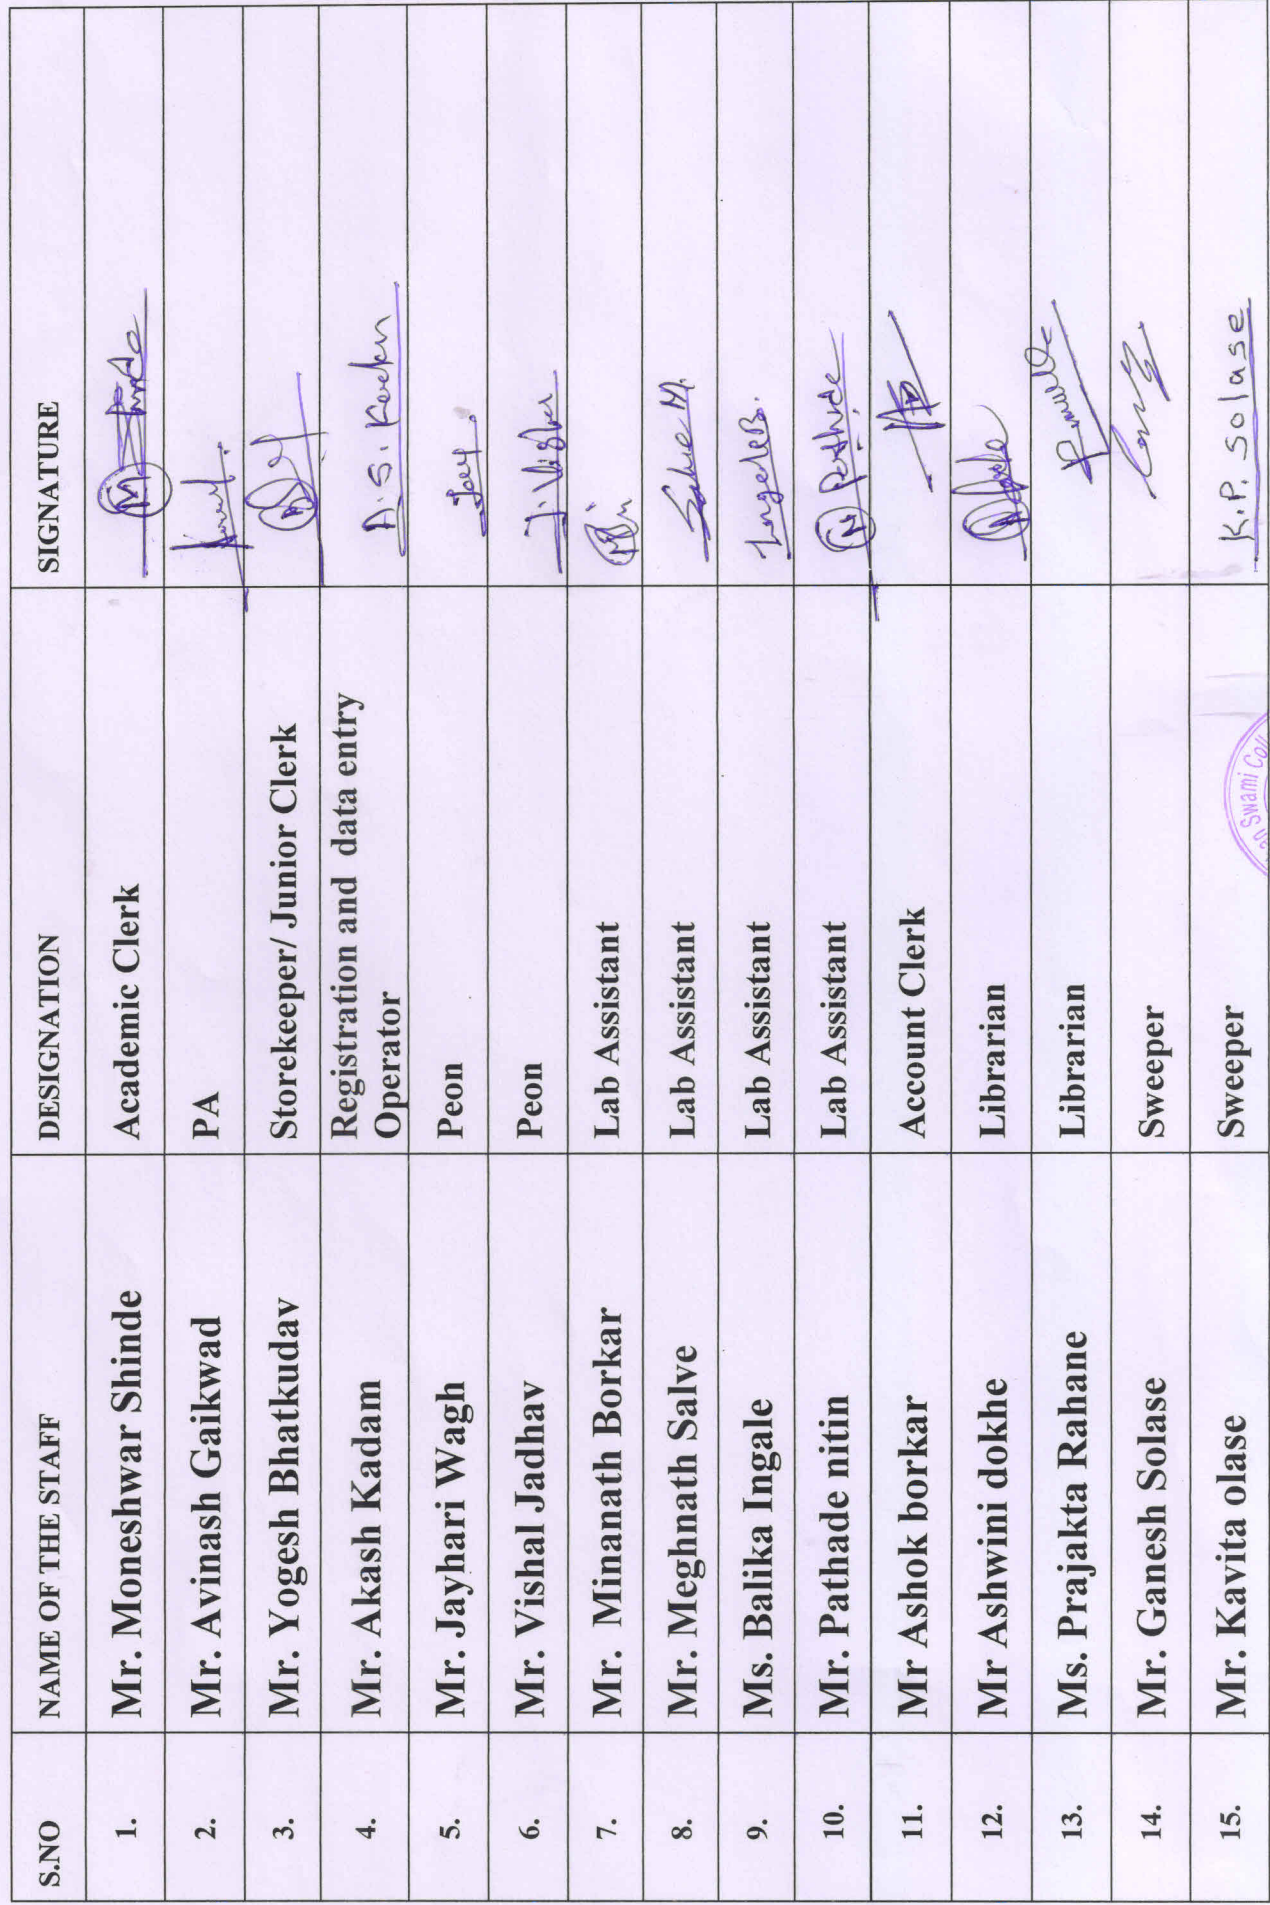 S.NO NAME OF THE STAFF DESIGNATION SIGNATURE
1. Mr. Moneshwar Shinde Academic Clerk
2. Mr. Avinash Gaikwad PA
3. Mr. Yogesh Bhatkudav Storekeeper/ Junior Clerk
4. Mr. Akash Kadam Registration and data entry
Operator A.S.
5. Mr. Jayhari Wagh Peon
6. Mr. Vishal Jadhav Peon J. Vishal
7. Mr. Minanath Borkar Lab Assistant
8. Mr. Meghnath Salve Lab Assistant Salve M.
9. Ms. Balika Ingale Lab Assistant Ingale B.
10. Mr. Pathade nitin Lab Assistant Pathade
11. Mr Ashok borkar Account Clerk
12. Mr Ashwini dokhe Librarian
13. Ms. Prajakta Rahane Librarian
14. Mr. Ganesh Solase Sweeper
15. Mr. Kavita olase Sweeper K.P. Solase
Swami